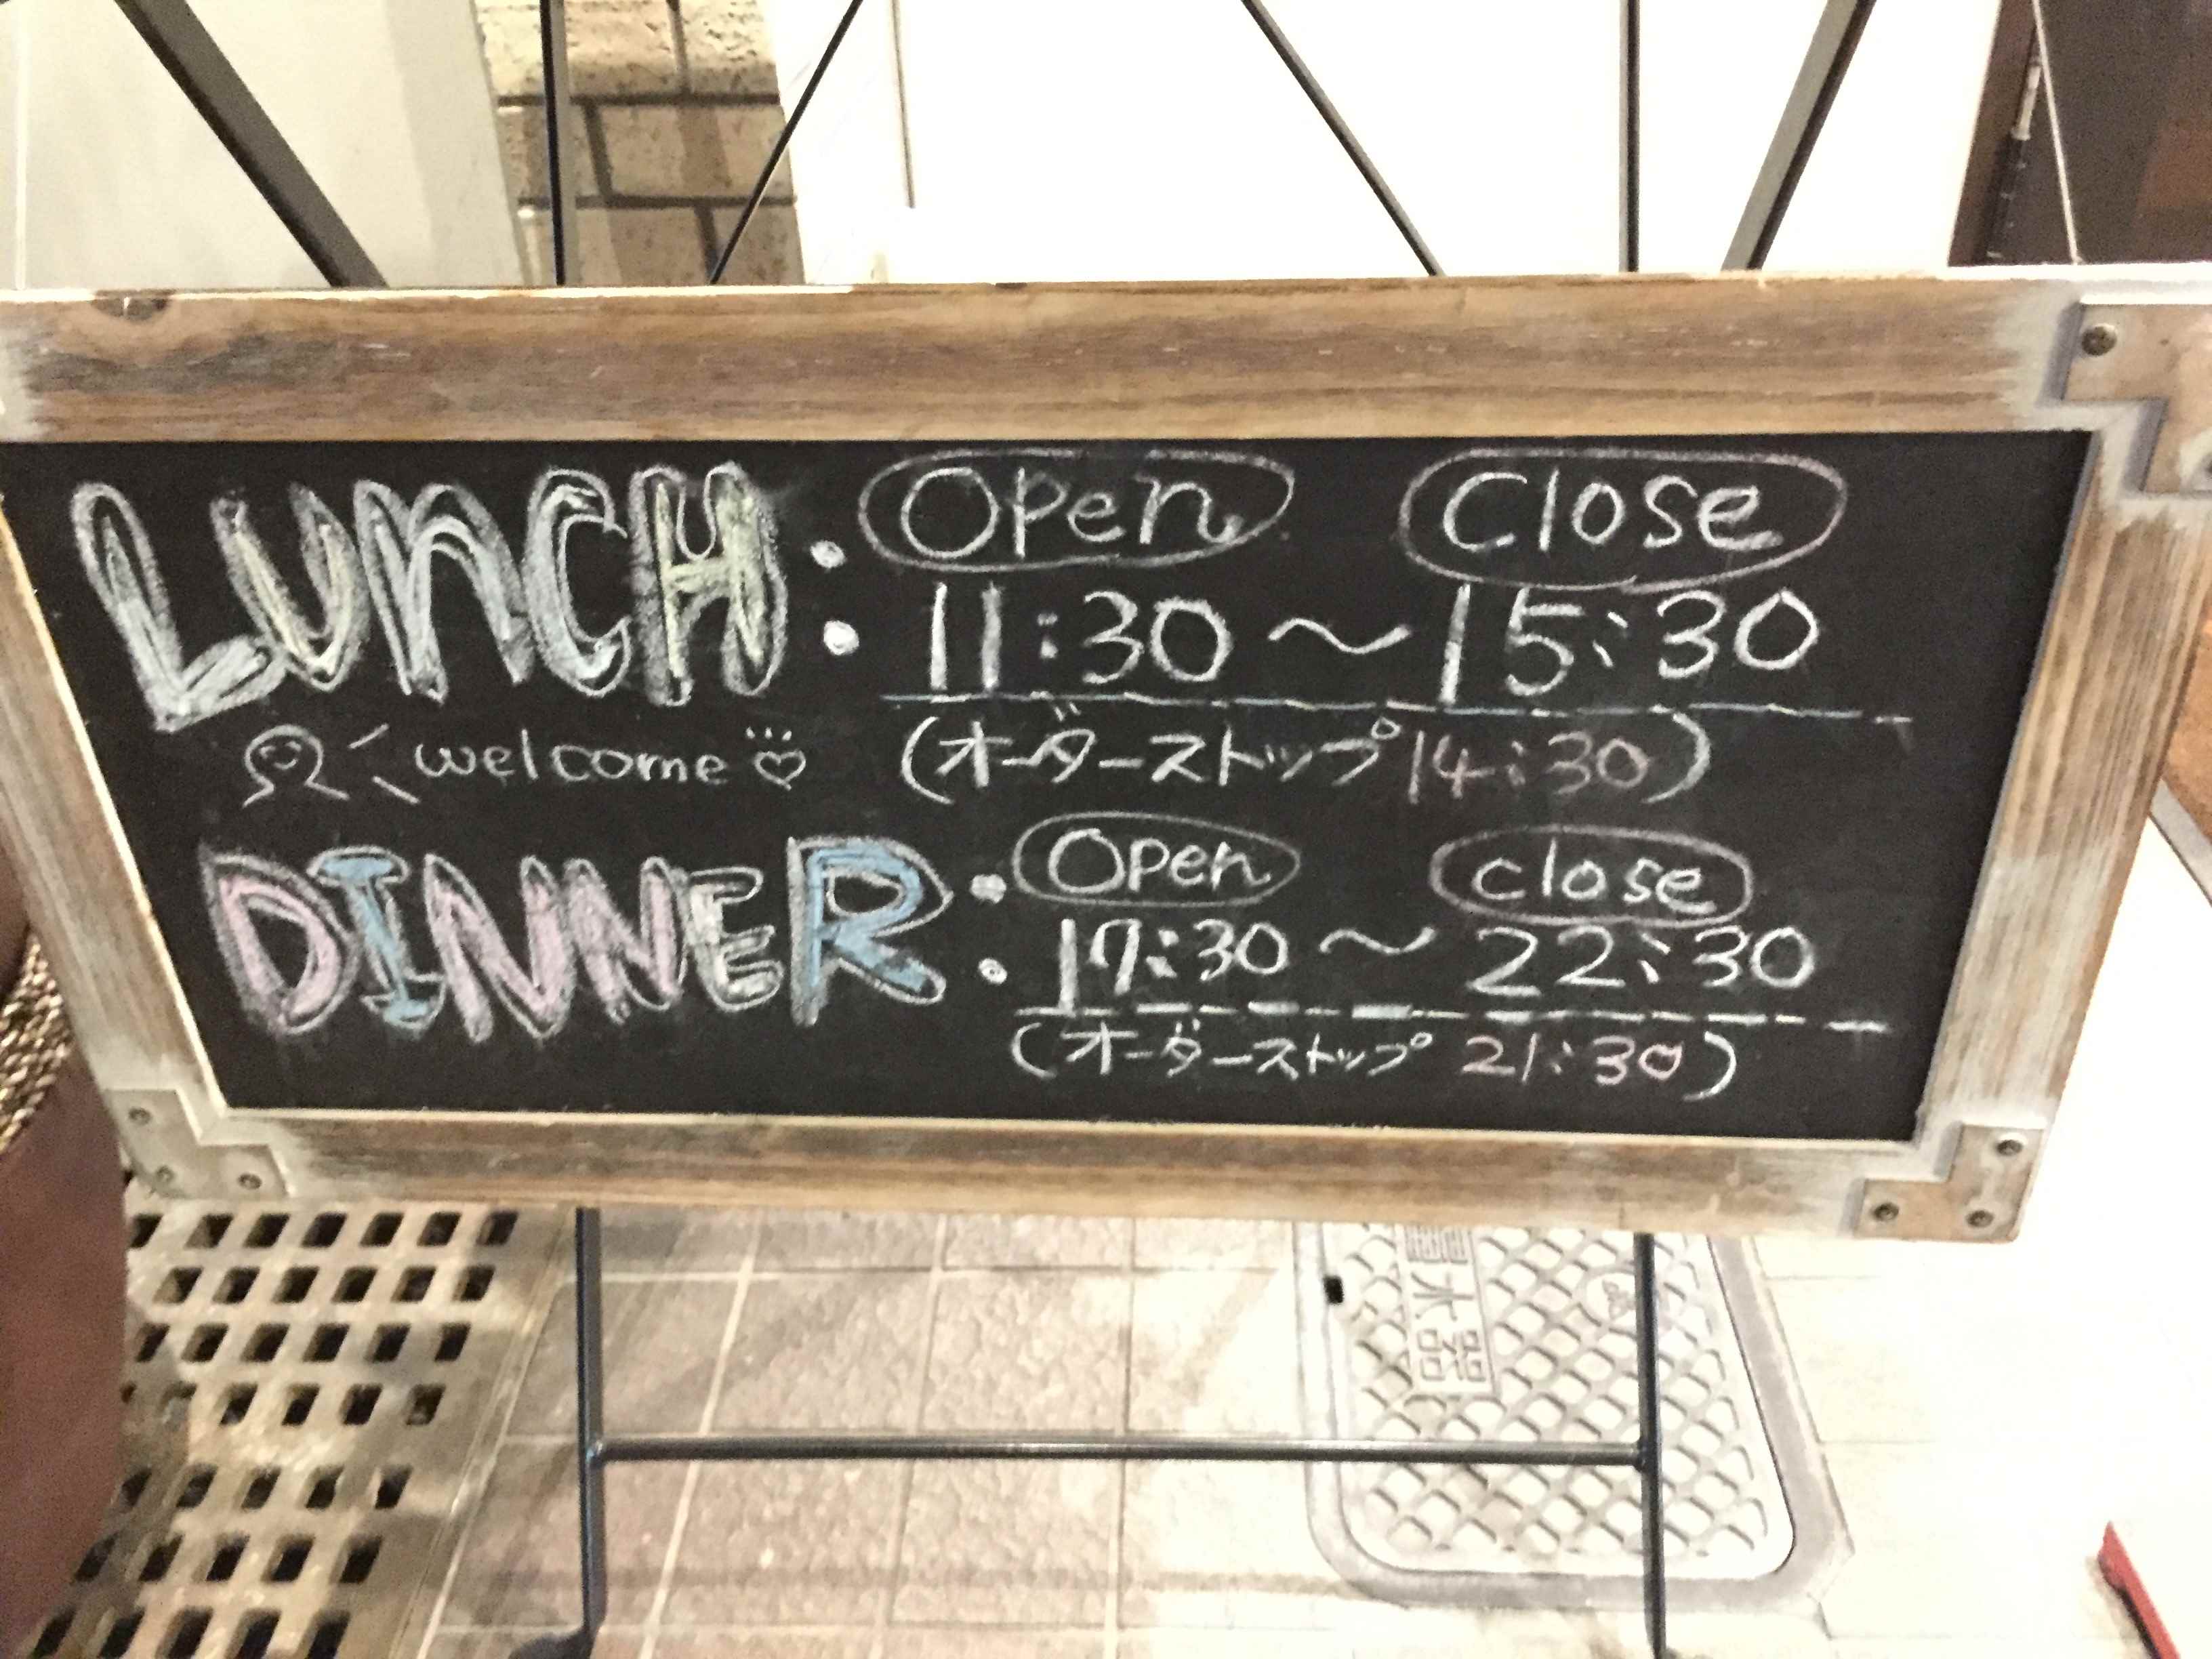 LUNCH: Open Close
11:30～15:30
welcome (オーダーストップ 14:30)
DINNER: Open close
17:30～22:30
(オーダーストップ 21:30)
水器